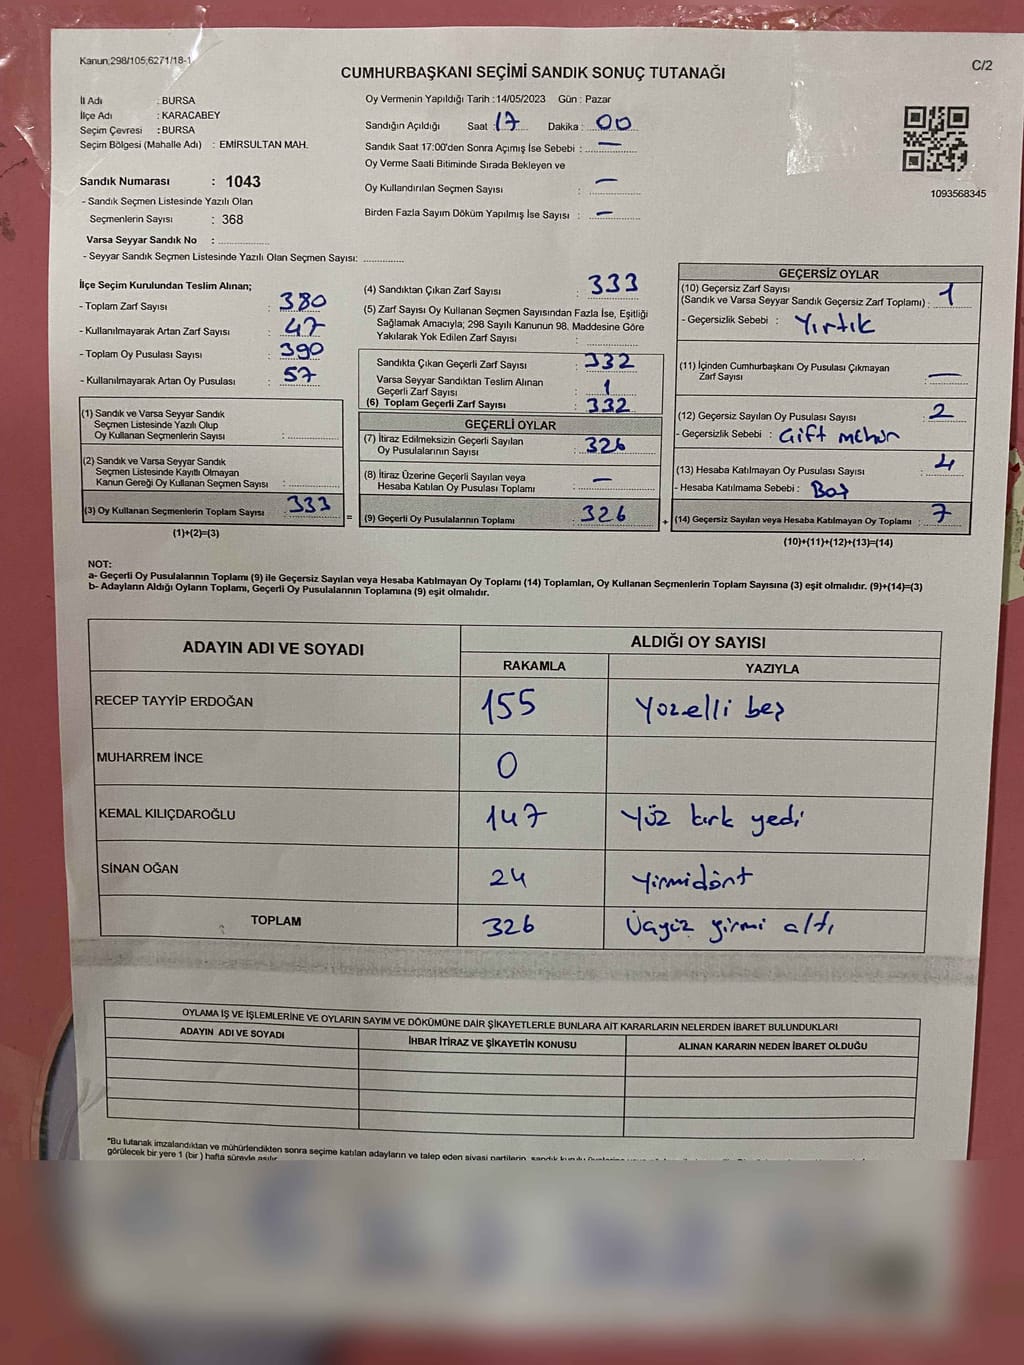 Kanun,298/105,6271/18-1
C/2
CUMHURBAŞKANI SEÇİMİ SANDIK SONUÇ TUTANAĞI
İl Adı : BURSA
İlçe Adı : KARACABEY
Seçim Çevresi : BURSA
Seçim Bölgesi (Mahalle Adı) : EMİRSULTAN MAH.
Sandık Numarası : 1043
- Sandık Seçmen Listesinde Yazılı Olan
Seçmenlerin Sayısı : 368
Varsa Seyyar Sandık No : ................
- Seyyar Sandık Seçmen Listesinde Yazılı Olan Seçmen Sayısı: ............
Oy Vermenin Yapıldığı Tarih :14/05/2023 Gün : Pazar
Sandığın Açıldığı Saat : 17 Dakika : 00
Sandık Saat 17:00'den Sonra Açımış İse Sebebi : —
Oy Verme Saati Bitiminde Sırada Bekleyen ve
Oy Kullandırılan Seçmen Sayısı : —
Birden Fazla Sayım Döküm Yapılmış İse Sayısı : —
1093568345
İlçe Seçim Kurulundan Teslim Alınan;
- Toplam Zarf Sayısı : 380
- Kullanılmayarak Artan Zarf Sayısı : 47
- Toplam Oy Pusulası Sayısı : 390
- Kullanılmayarak Artan Oy Pusulası : 57
(1) Sandık ve Varsa Seyyar Sandık
Seçmen Listesinde Yazılı Olup
Oy Kullanan Seçmenlerin Sayısı : ................
(2) Sandık ve Varsa Seyyar Sandık
Seçmen Listesinde Kayıtlı Olmayan
Kanun Gereği Oy Kullanan Seçmen Sayısı : ................
(3) Oy Kullanan Seçmenlerin Toplam Sayısı : 333
(1)+(2)=(3)
=
(4) Sandıktan Çıkan Zarf Sayısı : 333
(5) Zarf Sayısı Oy Kullanan Seçmen Sayısından Fazla İse, Eşitliği
Sağlamak Amacıyla; 298 Sayılı Kanunun 98. Maddesine Göre
Yakılarak Yok Edilen Zarf Sayısı : ................
Sandıkta Çıkan Geçerli Zarf Sayısı : 332
Varsa Seyyar Sandıktan Teslim Alınan
Geçerli Zarf Sayısı : 1
(6) Toplam Geçerli Zarf Sayısı : 332
GEÇERLİ OYLAR
(7) İtiraz Edilmeksizin Geçerli Sayılan
Oy Pusulalarının Sayısı : 326
(8) İtiraz Üzerine Geçerli Sayılan veya
Hesaba Katılan Oy Pusulası Toplamı : —
(9) Geçerli Oy Pusulalarının Toplamı : 326
+
GEÇERSİZ OYLAR
(10) Geçersiz Zarf Sayısı
(Sandık ve Varsa Seyyar Sandık Geçersiz Zarf Toplamı) : 1
- Geçersizlik Sebebi : Yırtık
(11) İçinden Cumhurbaşkanı Oy Pusulası Çıkmayan
Zarf Sayısı : —
(12) Geçersiz Sayılan Oy Pusulası Sayısı : 2
- Geçersizlik Sebebi : Gift mühür
(13) Hesaba Katılmayan Oy Pusulası Sayısı : 4
- Hesaba Katılmama Sebebi : Boş
(14) Geçersiz Sayılan veya Hesaba Katılmayan Oy Toplamı : 7
(10)+(11)+(12)+(13)=(14)
NOT:
a- Geçerli Oy Pusulalarının Toplamı (9) ile Geçersiz Sayılan veya Hesaba Katılmayan Oy Toplamı (14) Toplamları, Oy Kullanan Seçmenlerin Toplam Sayısına (3) eşit olmalıdır. (9)+(14)=(3)
b- Adayların Aldığı Oyların Toplamı, Geçerli Oy Pusulalarının Toplamına (9) eşit olmalıdır.
ADAYIN ADI VE SOYADI ALDIĞI OY SAYISI
RAKAMLA YAZIYLA
RECEP TAYYİP ERDOĞAN 155 Yüzelli beş
MUHARREM İNCE 0
KEMAL KILIÇDAROĞLU 147 Yüz kırk yedi
SİNAN OĞAN 24 Yirmidört
TOPLAM 326 Üçyüz yirmi altı
OYLAMA İŞ VE İŞLEMLERİNE VE OYLARIN SAYIM VE DÖKÜMÜNE DAİR ŞİKAYETLERLE BUNLARA AİT KARARLARIN NELERDEN İBARET BULUNDUKLARI
ADAYIN ADI VE SOYADI İHBAR İTİRAZ VE ŞİKAYETİN KONUSU ALINAN KARARIN NEDEN İBARET OLDUĞU
"Bu tutanak imzalandıktan ve mühürlendikten sonra seçime katılan adayların ve talep eden siyasi partilerin, sandık kurulu
görülecek bir yere 1 (bir ) hafta süreyle asılır.